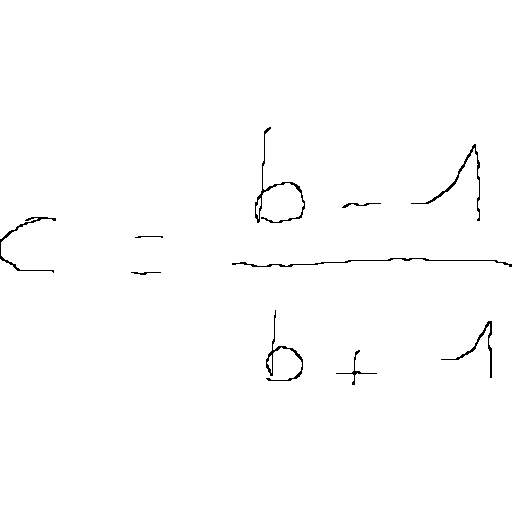 c = \frac{b - 1}{b + 1}